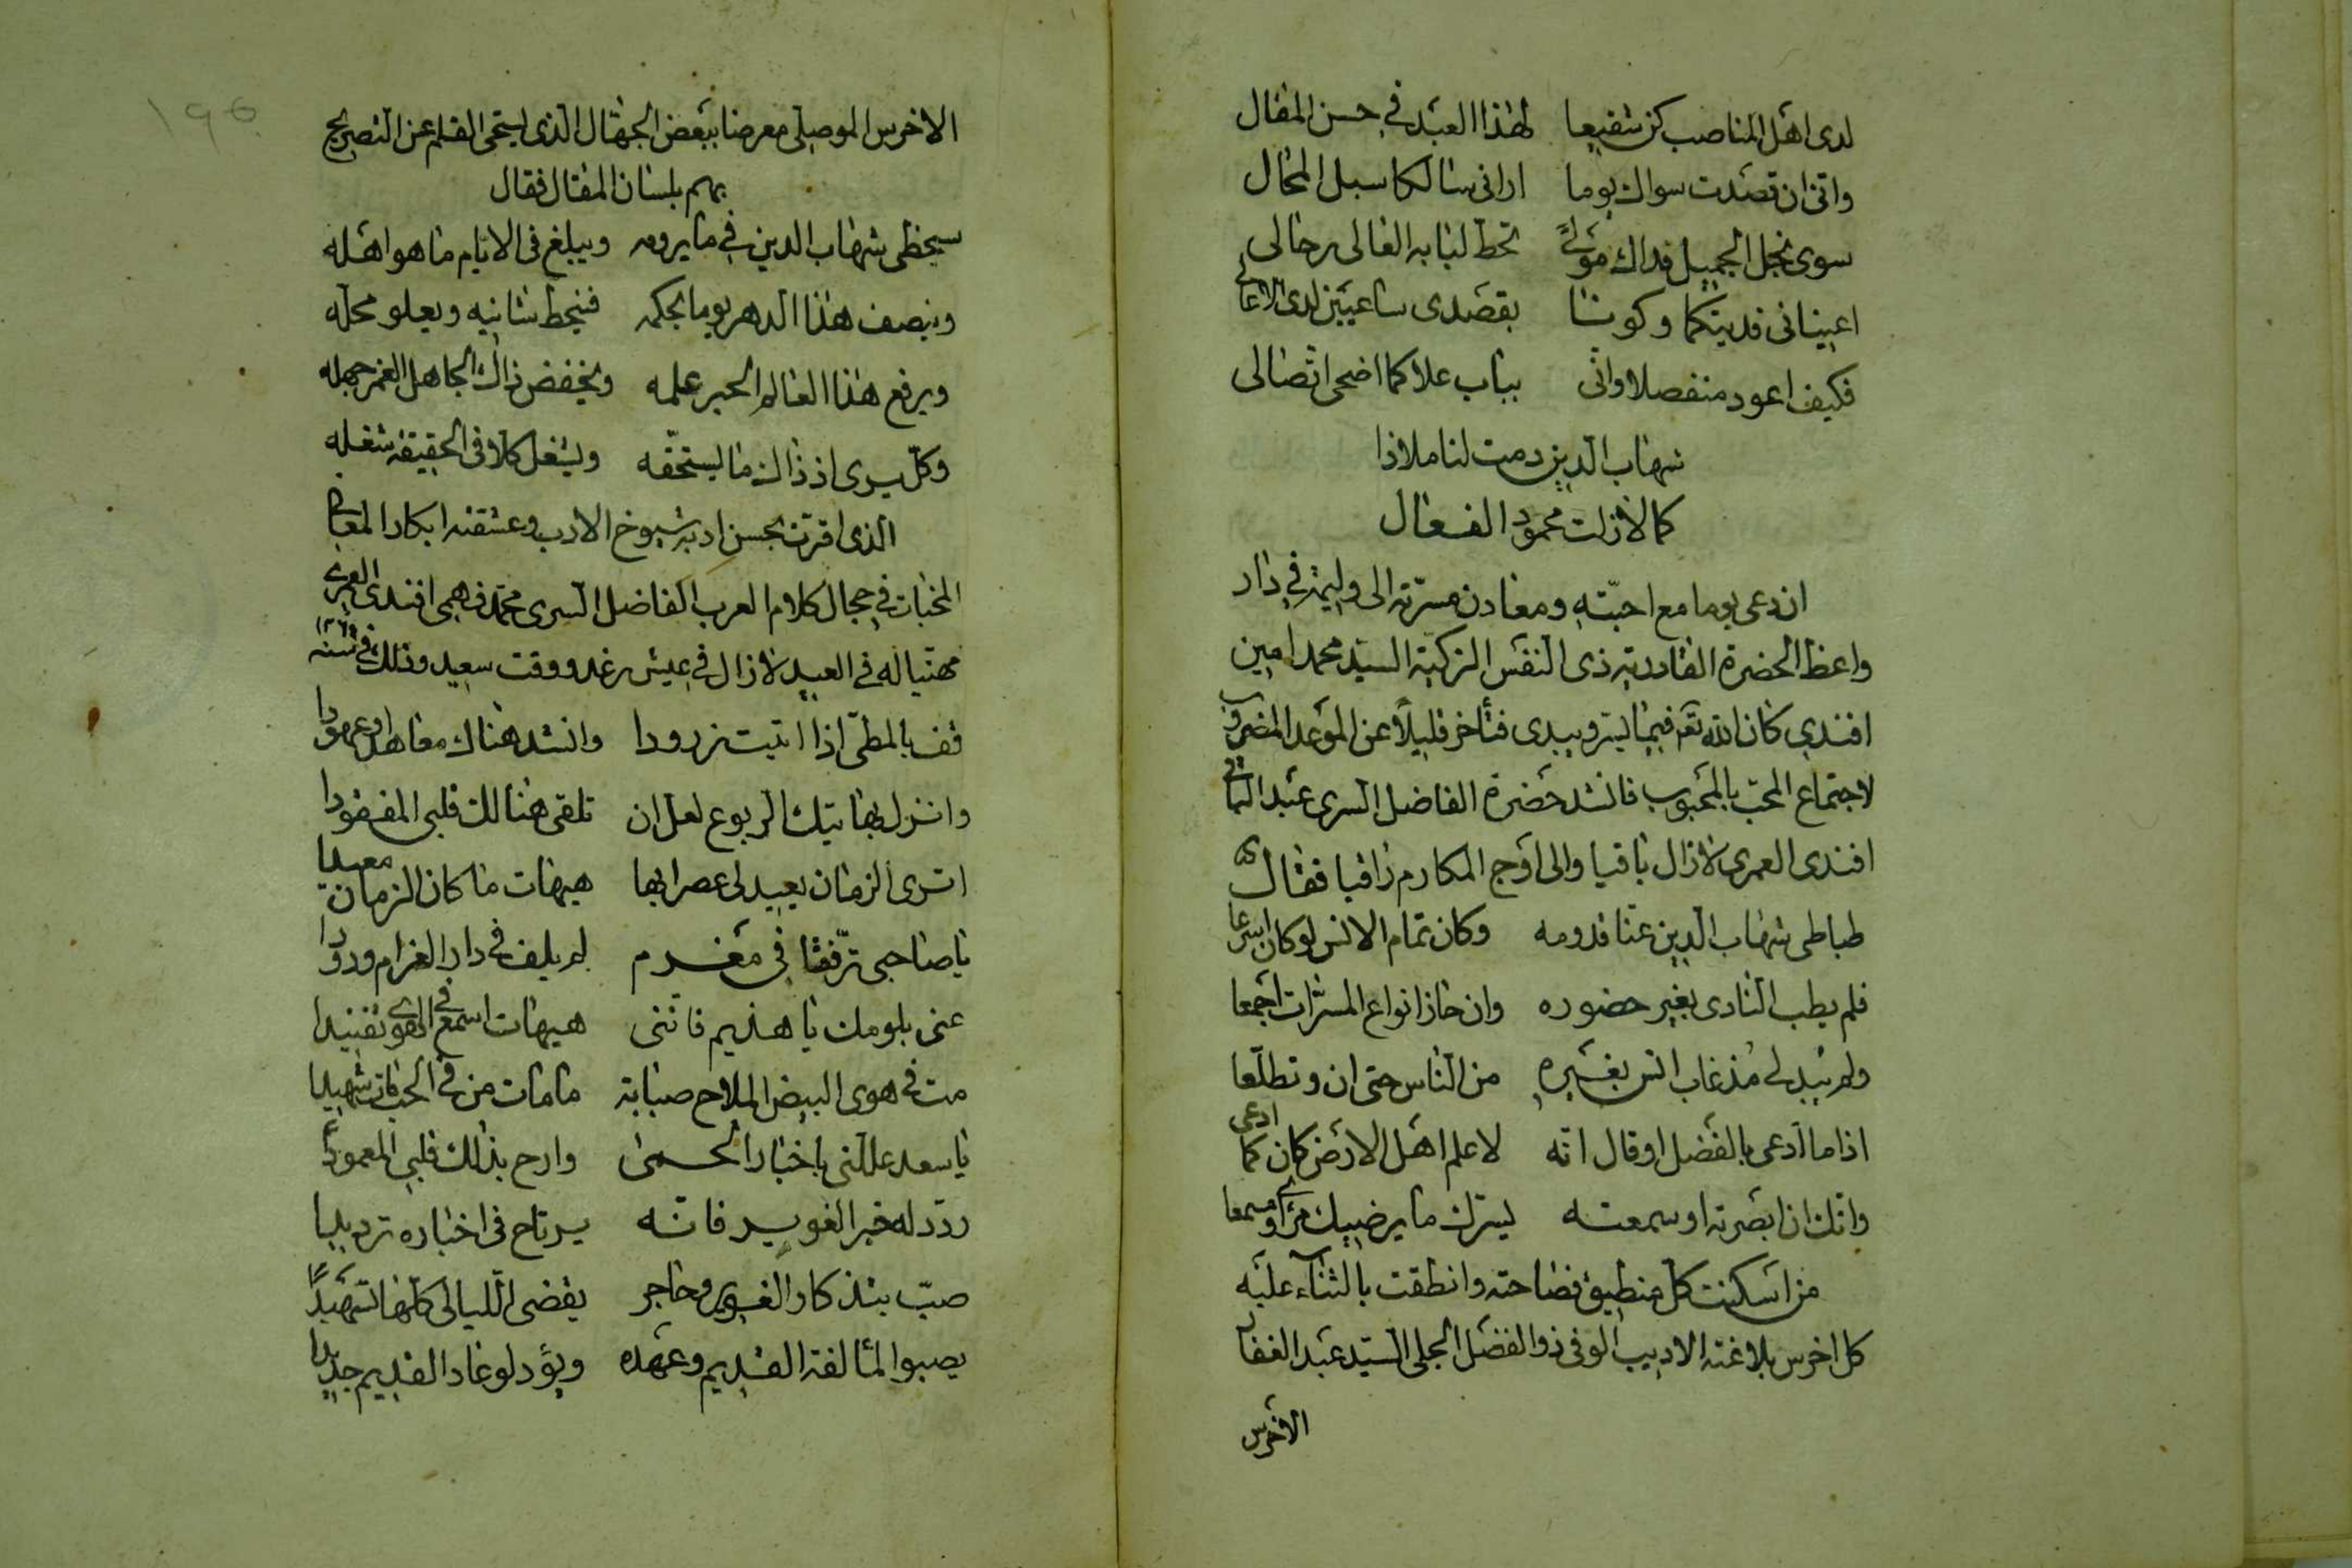 لدى اهل المناصب كن شفيعا لهذا العبد في حسن المقال
واني ان قصدت سواك يوما اراني سالكا سبل المحال
سوى نجل الجميل فداك مولى تحط لبابه العالي رحالي
اعيناني فديتكما وكونا بقصدى ساعيين لدى الاعالي
فكيف اعود منفصلا واني بباب علاكما اضحى اتصالى
شهاب الدين دمت لنا ملاذا
كما لازلت محمود الفعال
ان دعى يوما مع احبته ومعادن مسرته الى وليمة في دار
واعظ الحضرة القادرية ذى النفس الزكية السيد محمد امين
افندي كان الله تعم فيما يسر ويبدى فتأخر قليلا عن الموعد المضروب
لاجتماع المحب بالمحبوب فانشد حضرة الفاضل السرى عبد الباقي
افندى العمرى لازال باقيا والى اوج المكارم راقيا فقال
طباطى شهاب الدين عنا قدومه وكان تمام الانس لو كان اسرعا
فلم يطب النادى بغير حضوره وان حاز انواع المسرات اجمعا
ولم يبد لى مذ غاب انس بغيره من الناس حتى ان وتطلعا
اذا ما ادعى بالفضل او قال انه لاعلم اهل الارض كان كما ادعى
وانك ان ابصرته او سمعته يسرك ما يرضيك مرأى ومسمعا
من اسكنت كل منطيق فصاحته وانطقت بالثناء عليه
كل اخرس بلاغته الاديب الوفى ذو الفضل الجلى السيد عبد الغفار
الاخرس
١٩٥
الاخرس الموصلى معرضا ببعض الجهال الذى يستحى القلم عن التصريح
بهم بلسان المقال فقال
سيحظى شهاب الدين في ما يرومه ويبلغ فى الايام ما هو اهله
وينصف هذا الدهر يوما بحكمه فينحط شانيه ويعلو محله
ويرفع هذا العالم الحبر علمه ويخفض ذاك الجاهل الغمر جهله
وكل يرى اذ ذاك ما يستحقه ويشغل كلا فى الحقيقة شغله
الذى اقرت بحسن ادبه شيوخ الادب وعشقته ابكار المعانى
المخبات في حجال كلام العرب الفاضل السرى محمد فهمى افندى العمرى
مهنيا له في العيد لازال في عيش رغد ووقت سعيد وذلك في سنه
قف بالمطى اذا اتيت زرودا وانشد هناك معاهدا وعهودا
وانزل بهاتيك الربوع لعل ان تلقى هنالك قلبى المفقودا
اترى الزمان يعيد لى عصرا بها هيهات ما كان الزمان معيدا
يا صاحبى ترفقا في مغرم لم يلف في دار الغرام ودودا
عنى بلومك يا هذيم فانني هيهات اسمع في الهوى تفنيدا
مت في هوى البيض الملاح صبابة ما مات من في الحب مات شهيدا
يا سعد عللني باخبار الحمى وارح بذلك قلبي المعمودا
ردد له خبر الغوير فانه يرتاح فى اخباره ترديدا
صب بتذكار الغوير وحاجر يقضى الليالى كلها تسهيدا
يصبوا لمألفة القديم وعهده ويود لو عاد القديم جديدا